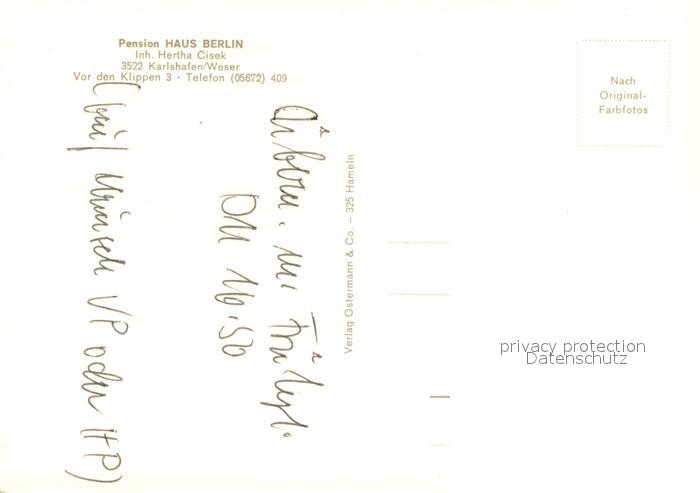 Pension HAUS BERLIN
Inh. Hertha Cisek
3522 Karlshafen/Weser
Vor den Klippen 3 · Telefon (05672) 409
Übern. m. Frühst.
DM 16.50
(auf Wunsch VP oder HP)
Verlag Ostermann & Co. – 325 Hameln
Nach
Original-
Farbfotos
privacy protection
Datenschutz